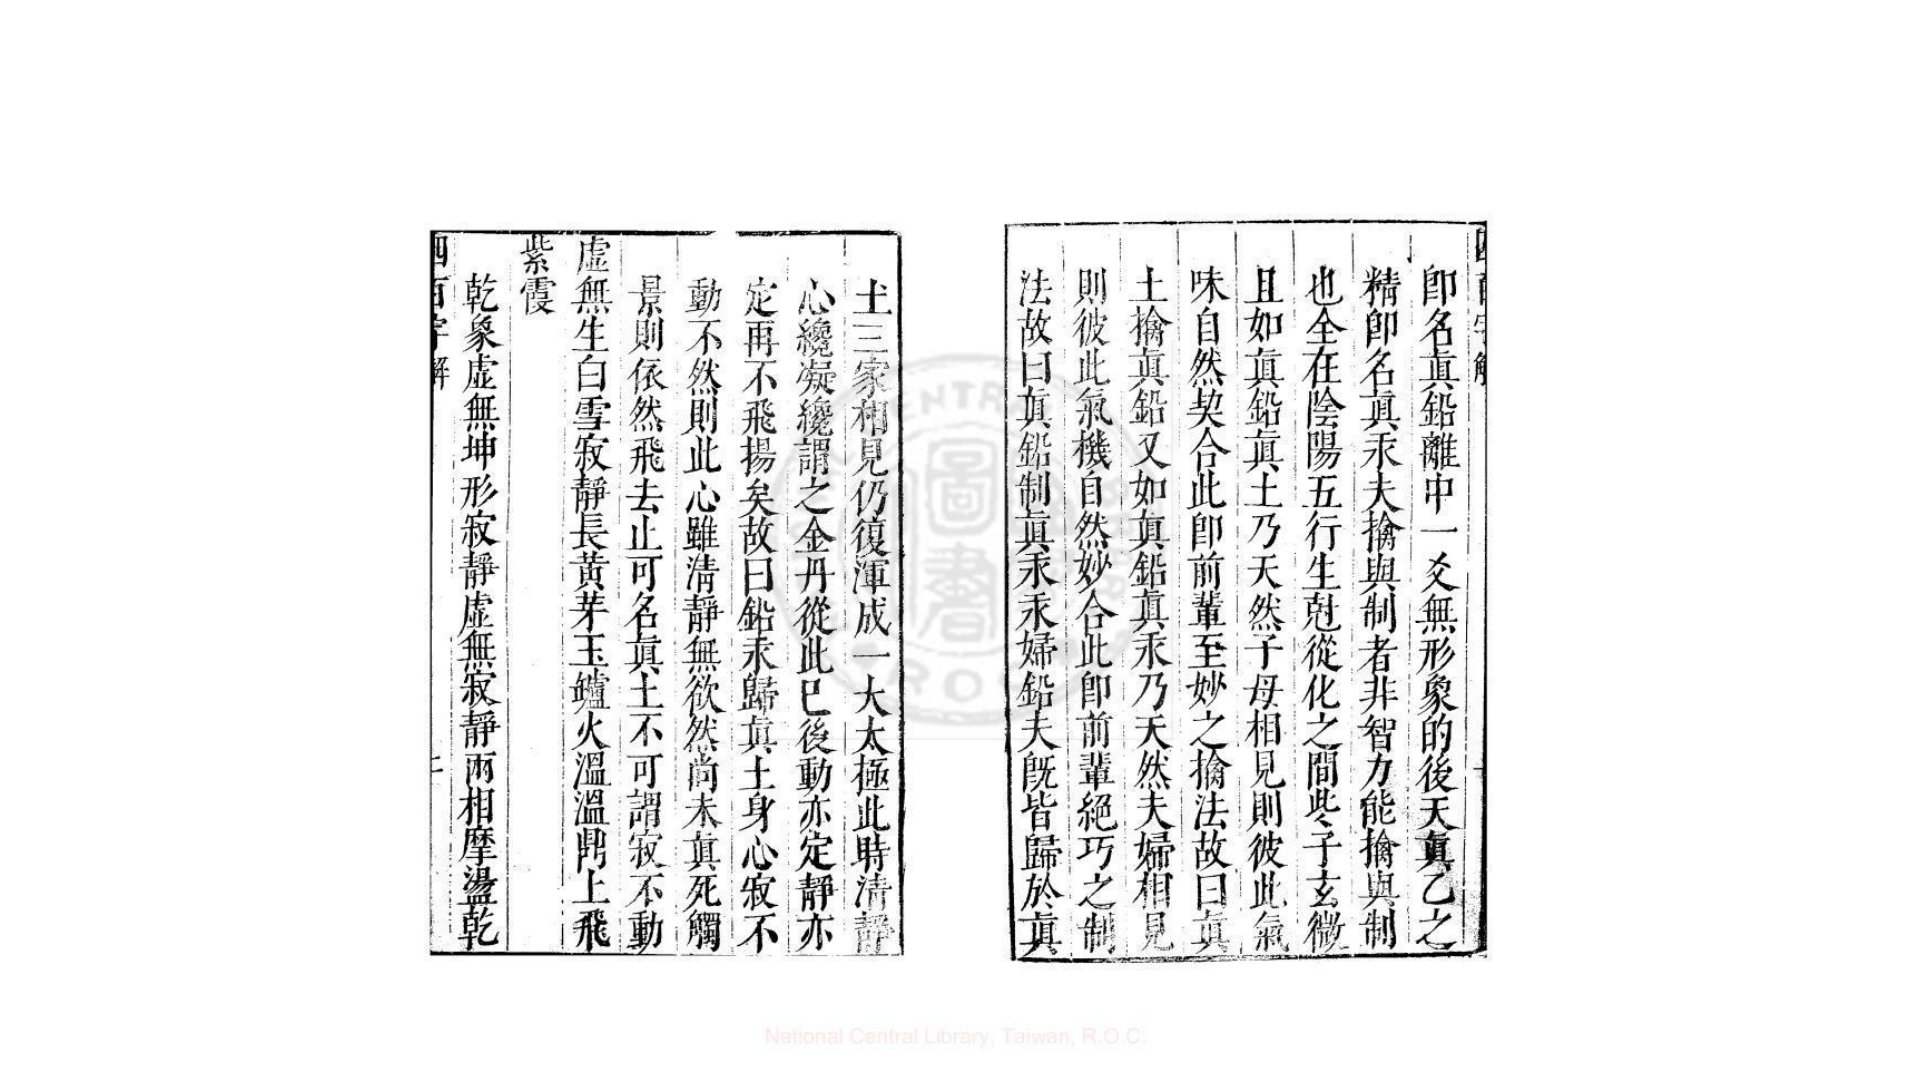 卽名眞鉛離中一爻無形象的後天眞乙之
精卽名眞汞夫擒與制者非智力能擒與制
也全在陰陽五行生尅從化之間些子玄微
且如眞鉛眞土乃天然子母相見則彼此氣
味自然契合此卽前輩至妙之擒法故曰眞
土擒眞鉛又如眞鉛眞汞乃天然夫婦相見
則彼此氣機自然妙合此卽前輩絕巧之制
法故曰眞鉛制眞汞汞婦鉛夫旣皆歸於眞
土三家相見仍復渾成一大太極此時清靜
心纔凝纔謂之金丹從此巳後動亦定靜亦
定再不飛揚矣故曰鉛汞歸眞土身心寂不
動不然則此心雖清靜無欲然尚未眞死觸
景則依然飛去止可名眞土不可謂寂不動
虛無生白雪寂靜長黃芽玉爐火溫溫鼎上飛
紫霞
乾象虛無坤形寂靜虛無寂靜兩相摩盪乾
四百字解
National Central Library, Taiwan, R.O.C.